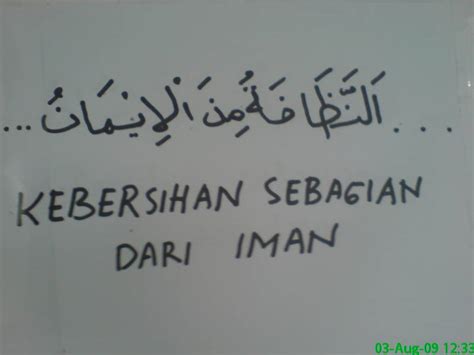 ... اَلنَّظَافَةُ مِنَ الْإِيْمَانُ ...
KEBERSIHAN SEBAGIAN
DARI IMAN
03-Aug-09 12:33